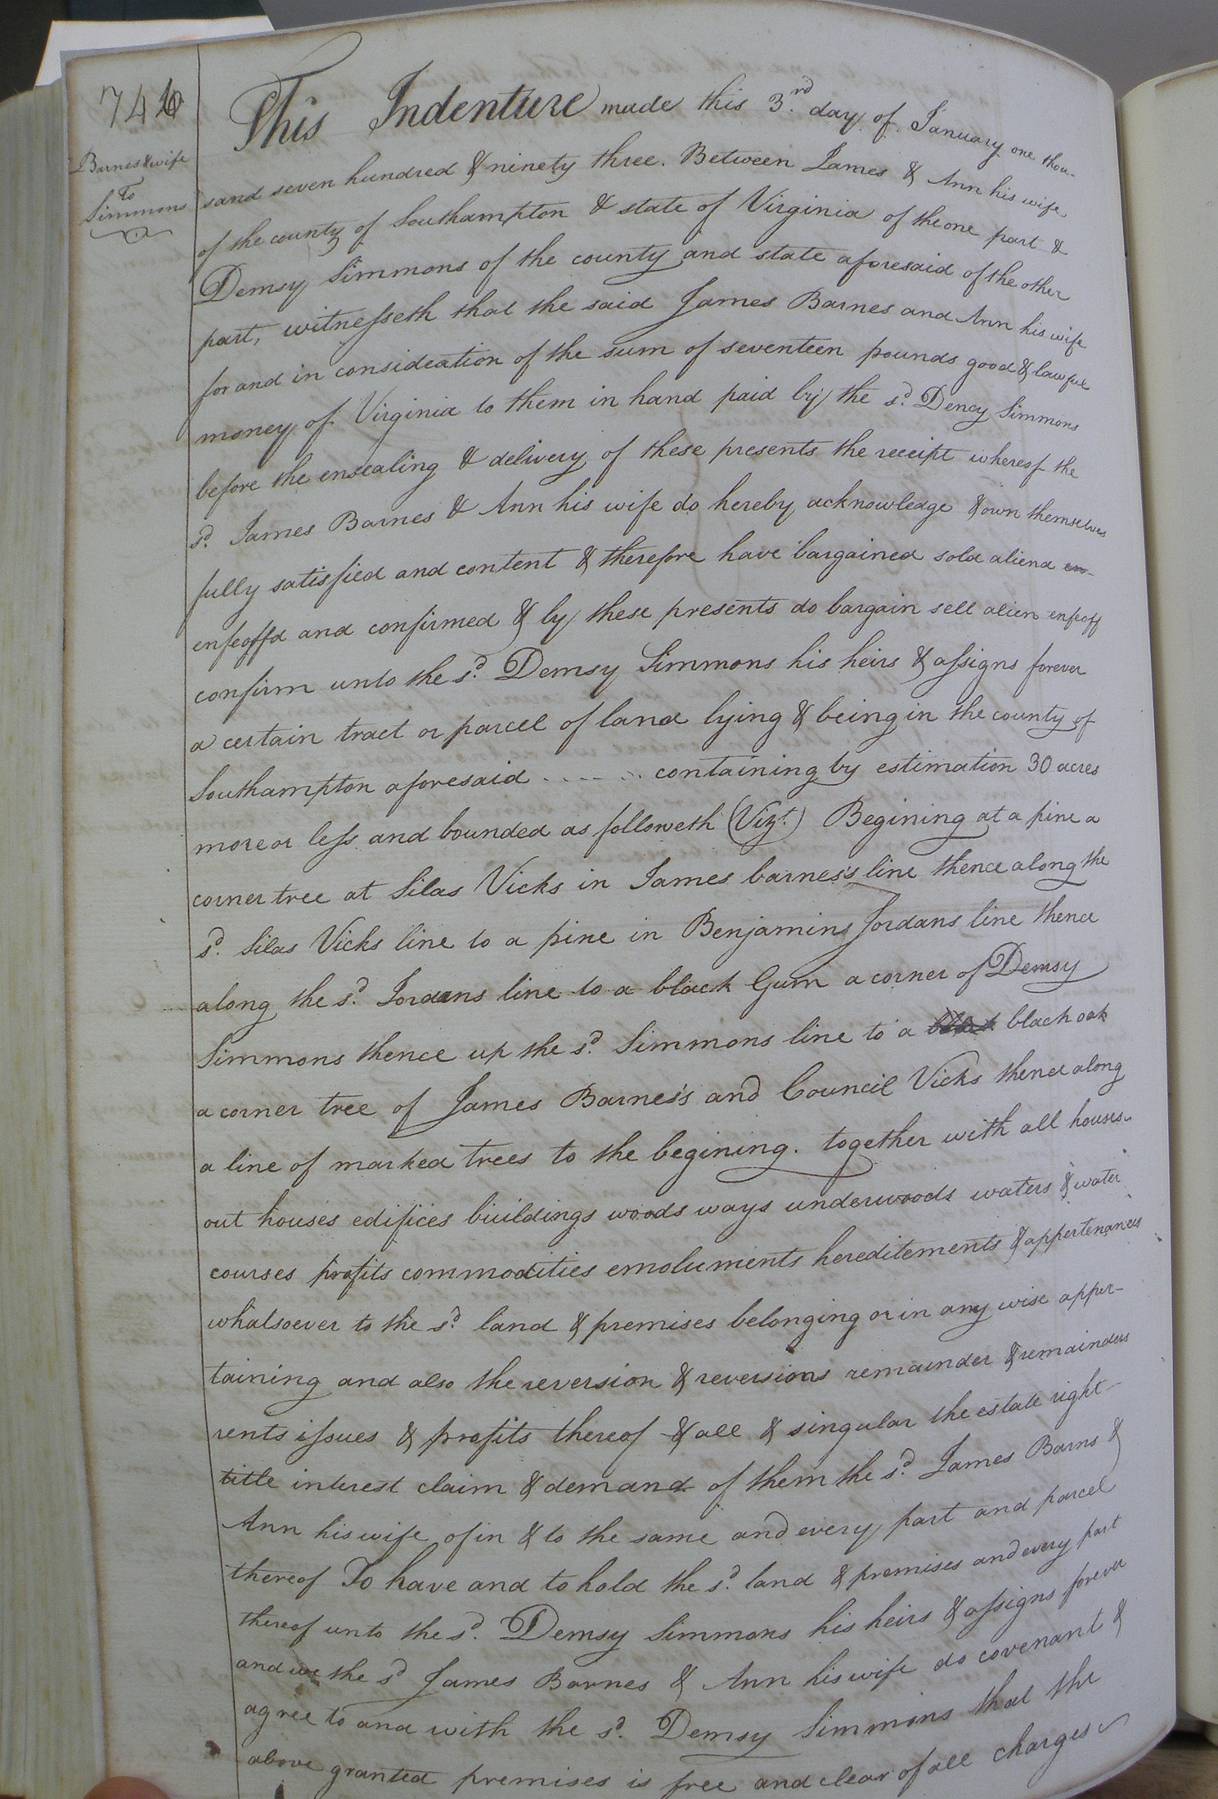 746
Barnes & wife
To
Simmons
This Indenture made this 3.rd day of January one thou-
sand seven hundred & ninety three. Between James & Ann his wife
of the county of Southampton & state of Virginia of the one part &
Demsy Simmons of the county and state aforesaid of the other
part, witnesseth that the said James Barnes and Ann his wife
for and in consideation of the sum of seventeen pounds good & lawful
money of Virginia to them in hand paid by the sd. Demcy Simmons
before the ensealing & delivery of these presents the receipt whereof the
sd. James Barnes & Ann his wife do hereby acknowledge & own themselves
fully satisfied and content & therefore have bargained sold aliend en-
enfeoffd and confirmed & by these presents do bargain sell alien enfeoff
confirm unto the sd. Demsy Simmons his heirs & assigns forever
a certain tract or parcel of land lying & being in the county of
Southampton aforesaid ...... containing by estimation 30 acres
more or less and bounded as followeth (Vizt.) Begining at a pine a
corner tree at Silas Vicks in James barnes's line thence along the
sd. Silas Vicks line to a pine in Benjamins Jordans line thence
along the sd. Jordans line to a black Gum a corner of Demsy
Simmons thence up the sd. Simmons line to a black black oak
a corner tree of James Barnes's and Council Vicks thence along
a line of marked trees to the begining. together with all houses
out houses edifices buildings woods ways underwoods waters & water
courses profits commodities emoluments hereditements & appertenances
whatsoever to the sd. land & premises belonging or in any wise apper-
taining and also the reversion & reversions remainder & remainders
rents issues & profits thereof & all & singular the estate right
title interest claim & demand of them the sd. James Barns &
Ann his wife of in & to the same and every part and parcel
thereof To have and to hold the sd. land & premises and every part
thereof unto the sd. Demsy Simmons his heirs & assigns forever
and we the sd James Barnes & Ann his wife do covenant &
agree to and with the sd. Demsy Simmons that the
above granted premises is free and clear of all charges